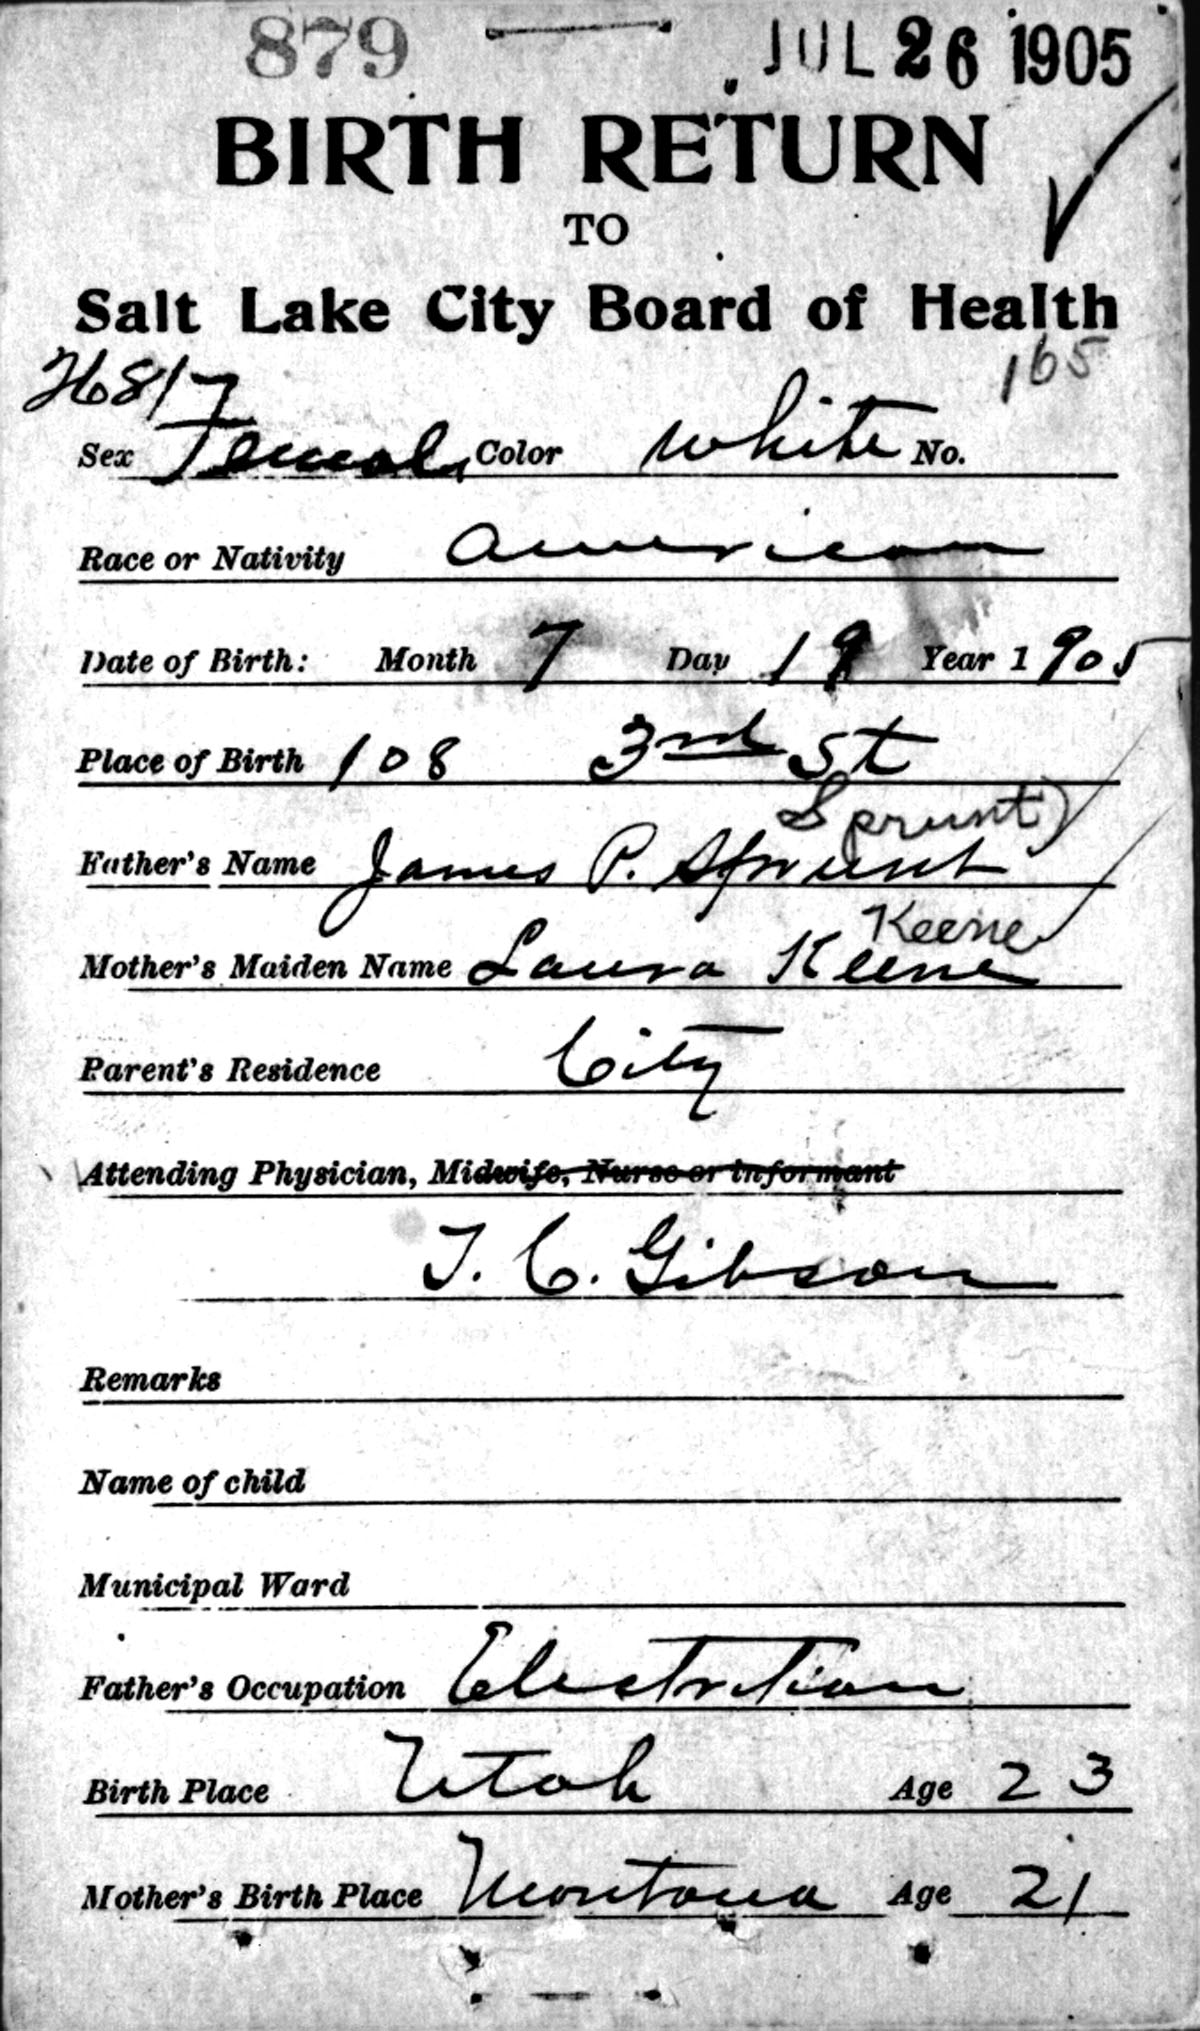 879 JUL 26 1905
BIRTH RETURN
TO
Salt Lake City Board of Health
26817 165
Sex Female Color White No.
Race or Nativity American
Date of Birth: Month 7 Day 19 Year 1905
Place of Birth 108 3rd St
Sprunt)
Father's Name James P. Sprunt
Keene
Mother's Maiden Name Laura Keene
Parent's Residence City
Attending Physician, Midwife, Nurse or informant
T. C. Gibson
Remarks
Name of child
Municipal Ward
Father's Occupation Electrition
Birth Place Utah Age 23
Mother's Birth Place Montana Age 21